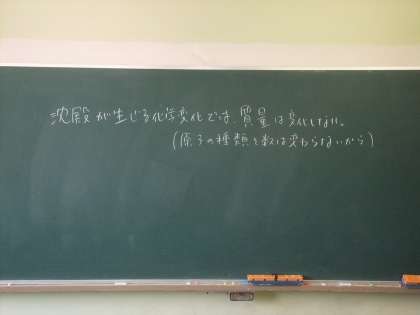 沈殿が生じる化学変化では、質量は変化しない。
(原子の種類と数は変わらないから)